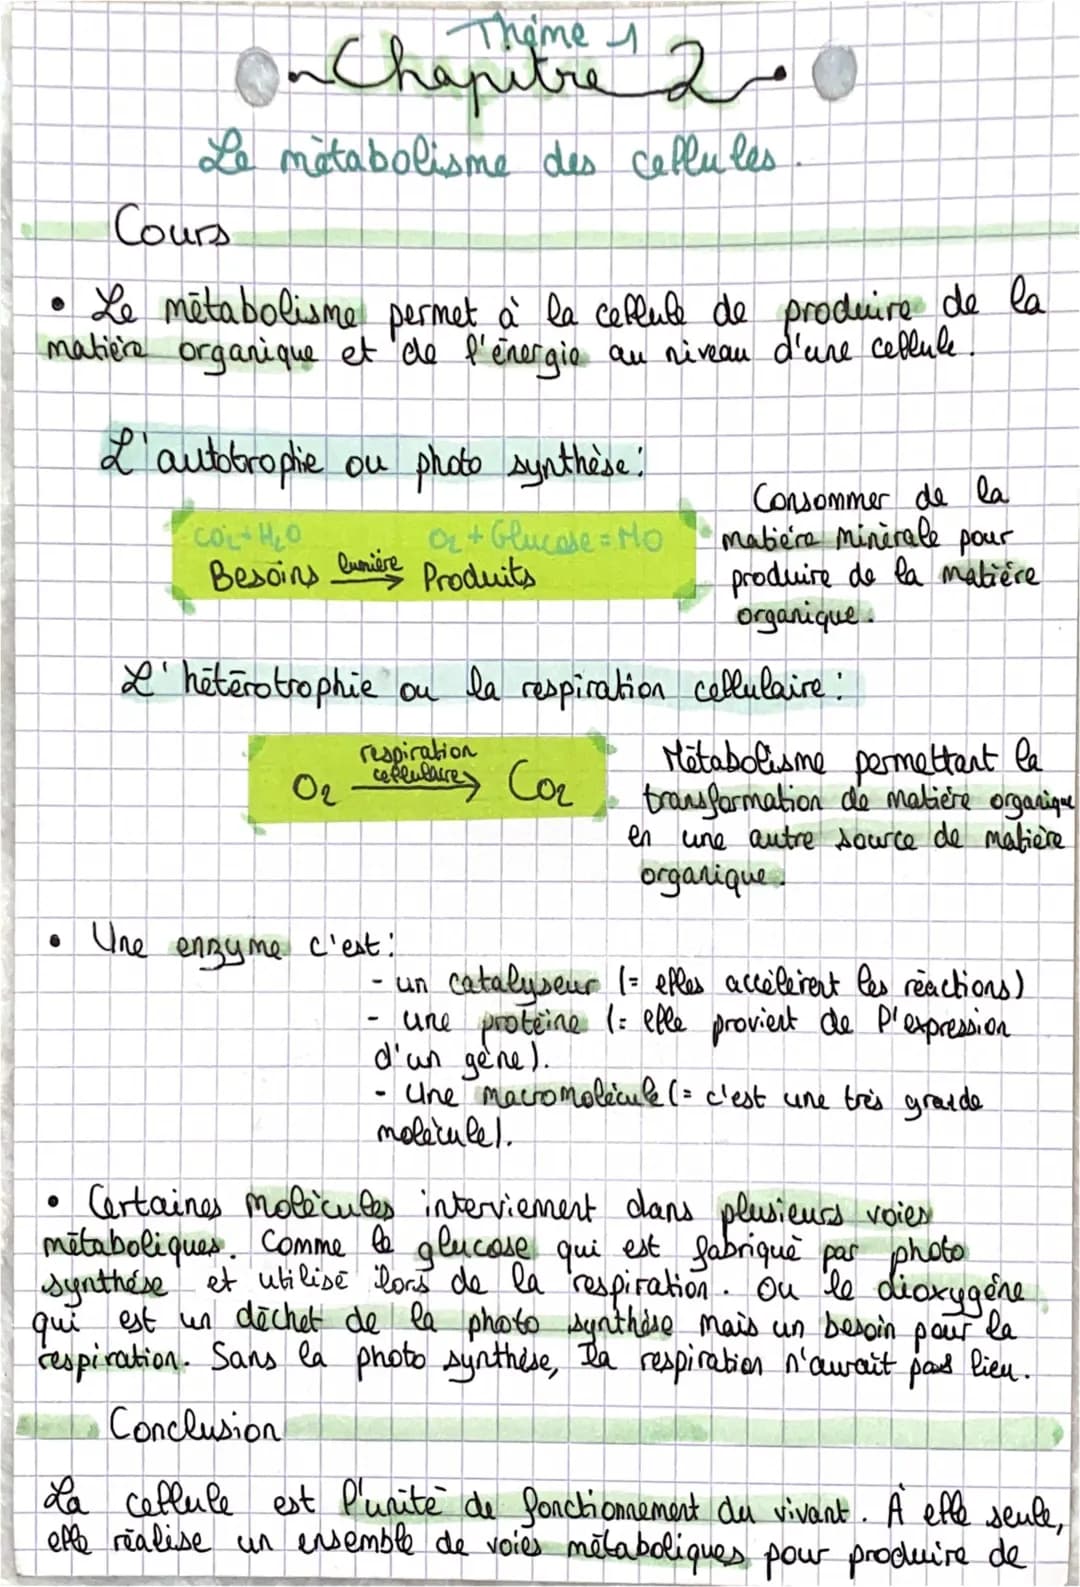 Thème 1
Chapitre 2
Le mètabolisme des cellules.
Cours
• Le mētabolisme permet à la cellule de produire de la
matière organique et de l'ēnergie au niveau d'une cellule.
L'autotrophie ou photo synthèse:
CO2+H2O O2+Glucose=MO
Besoins lumière Produits
Consommer de la
matière minèrale pour
produire de la matière
organique.
L'hētērotrophie ou la respiration cellulaire:
respiration
O2 cellulaire CO2
Mētabolisme permettant la
transformation de matière organique
en une autre source de matière
organique.
• Une enzyme c'est:
- un catalyseur (= elles accèlèrent les rèactions)
- une protēine (= elle provient de l'expression
d'un gène).
- Une macromolècule (= c'est une très grande
molècule).
• Certaines molècules interviennent dans plusieurs voies
mētaboliques. Comme le glucose qui est fabriquè par photo
synthèse et utilisē lors de la respiration. Ou le dioxygène
qui est un dēchet de la photo synthèse mais un besoin pour la
respiration. Sans la photo synthèse, la respiration n'aurait pas lieu.
Conclusion
La cellule est l'unitē de fonctionnement du vivant. À elle seule,
elle rēalise un ensemble de voies mētaboliques pour produire de